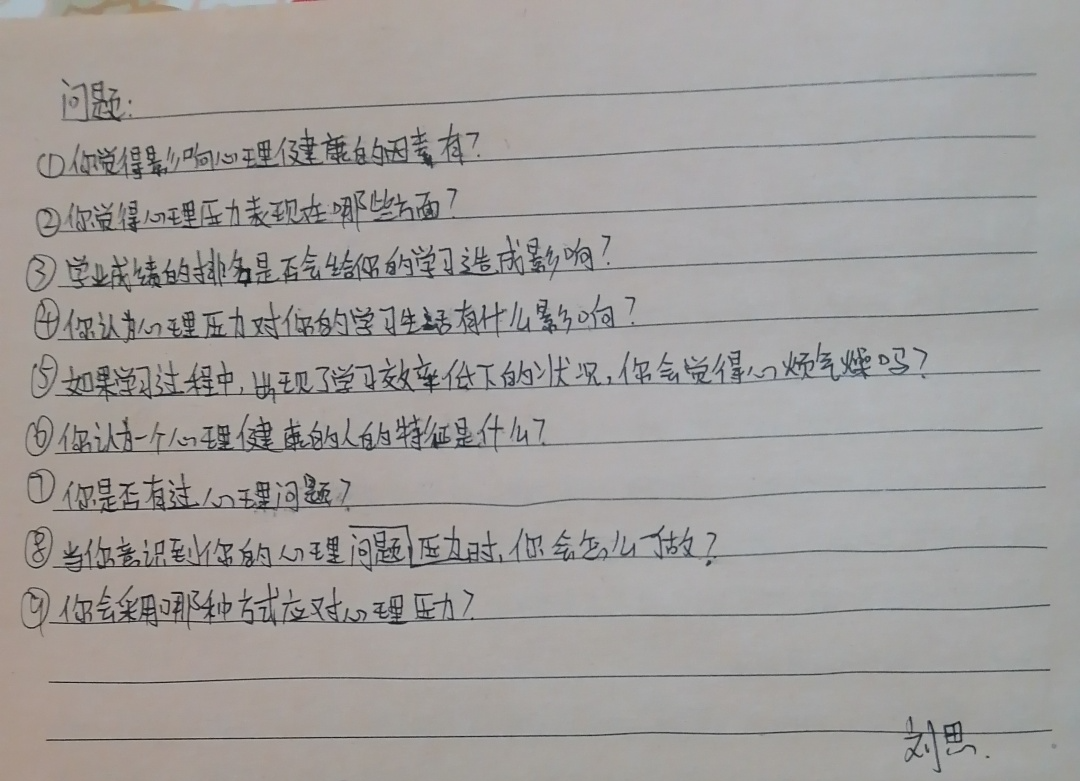 问题:
①你觉得影响心理健康的因素有?
②你觉得心理压力表现在哪些方面?
③学业成绩的排名是否会给你的学习造成影响?
④你认为心理压力对你的学习生活有什么影响?
⑤如果学习过程中,出现了学习效率低下的状况,你会觉得心烦气燥吗?
⑥你认为一个心理健康的人的特征是什么?
⑦你是否有过心理问题?
⑧当你意识到你的心理问题压力时,你会怎么做?
⑨你会采用哪种方式应对心理压力?
刘思.